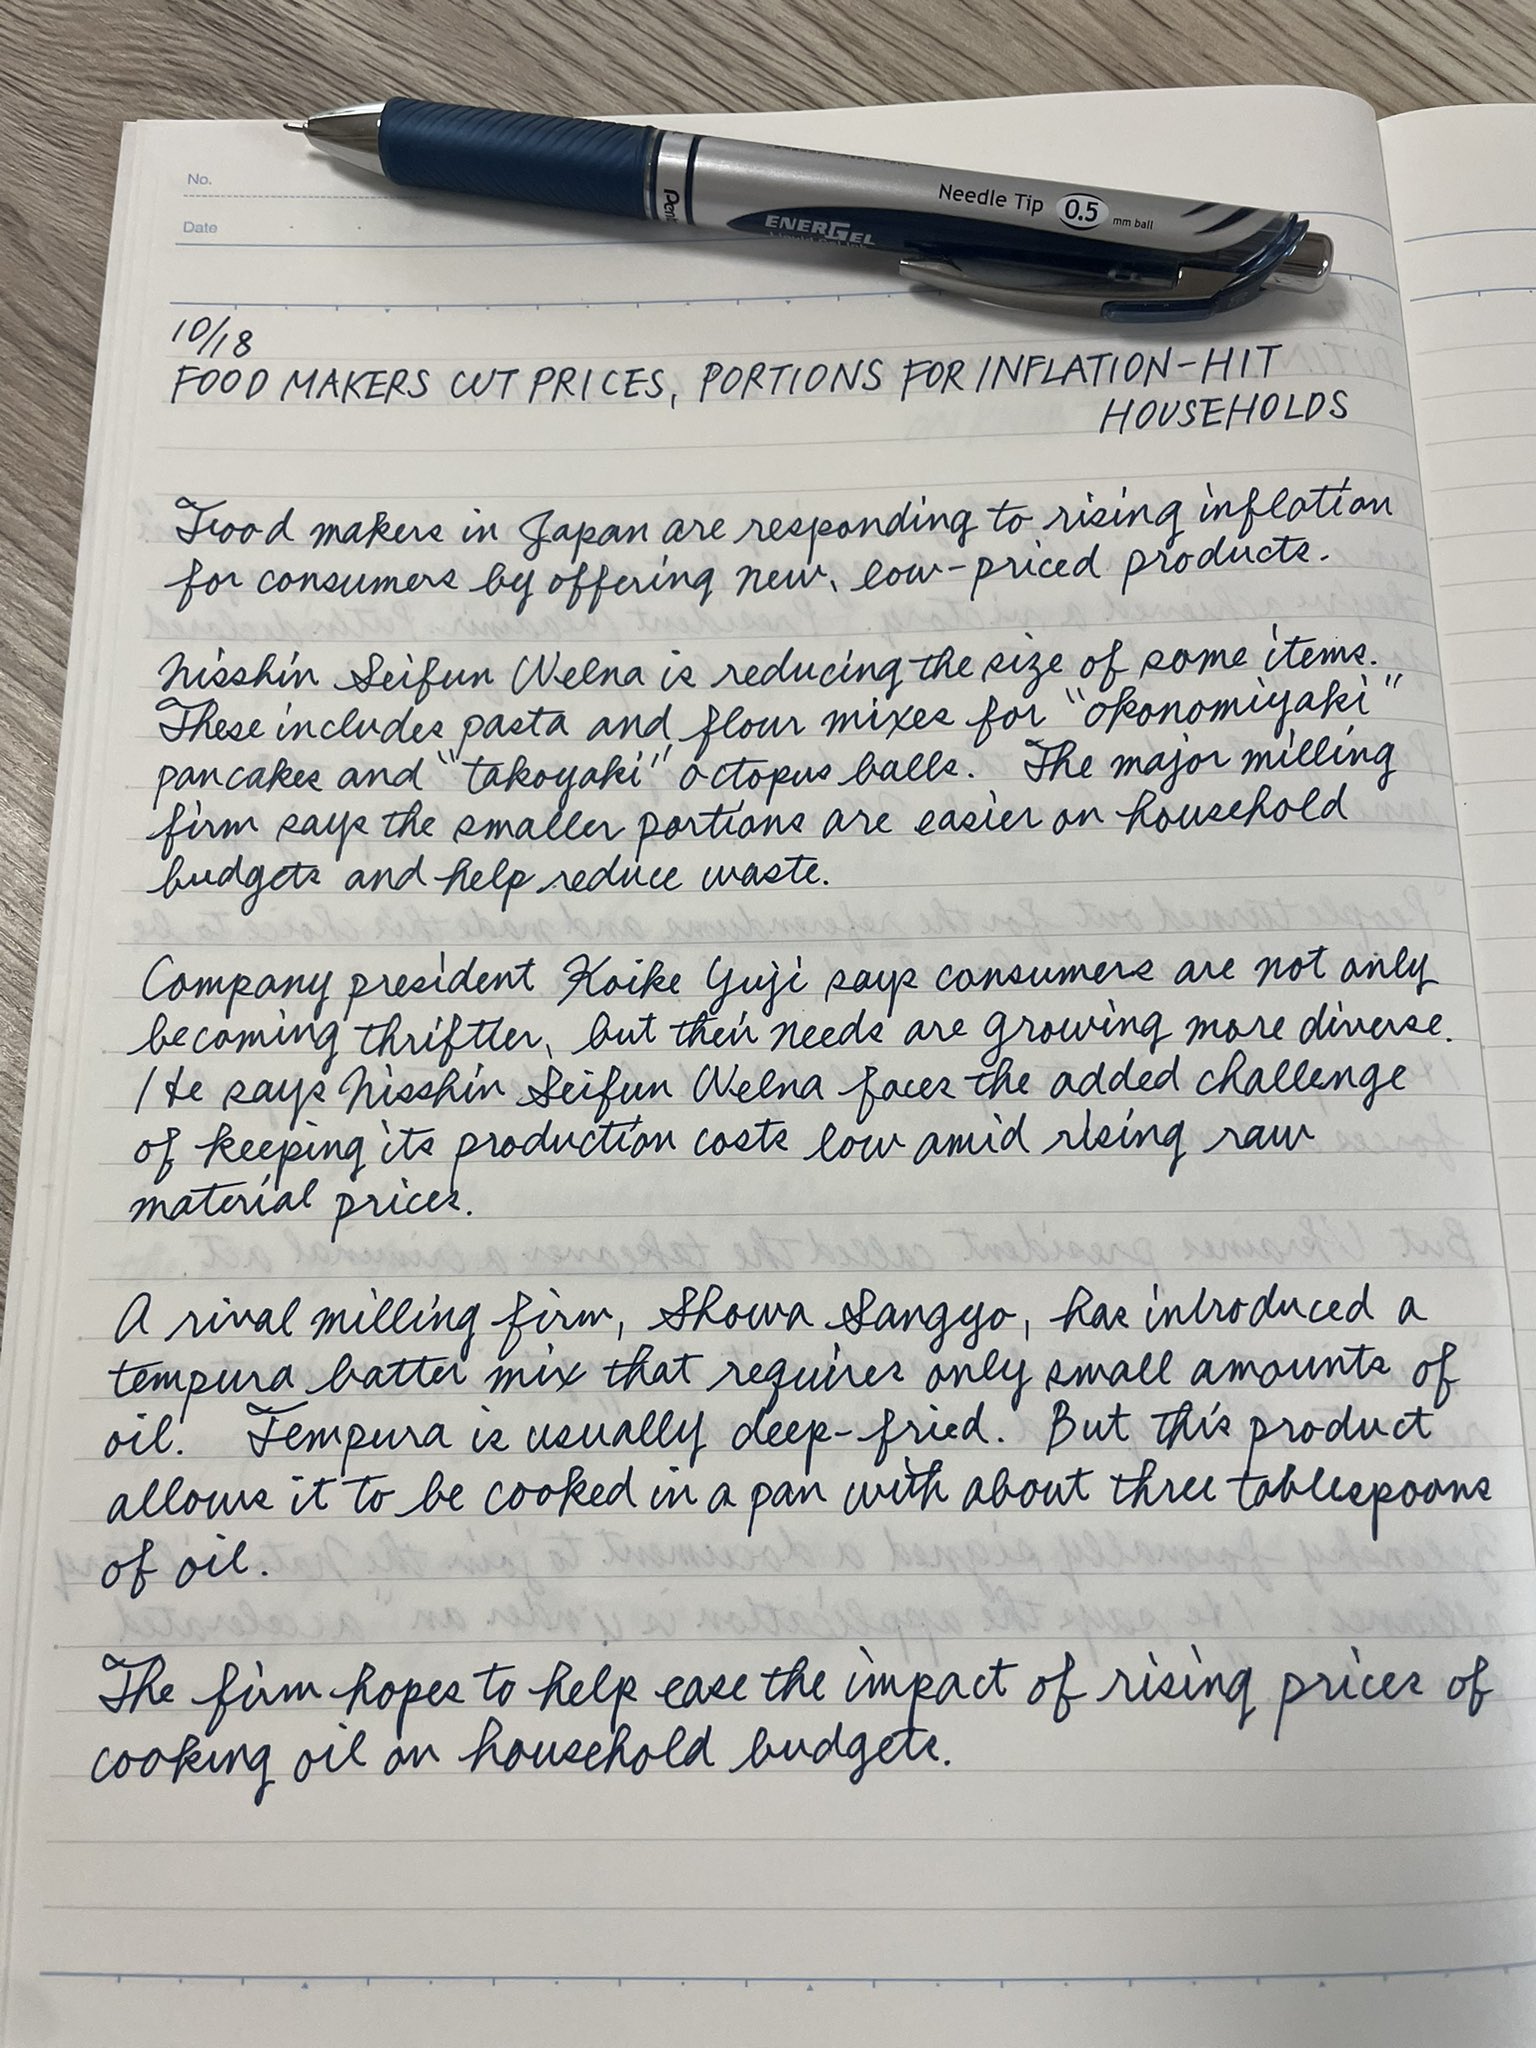 No.
Date
Pent
ENERGEL
Needle Tip 0.5 mm ball
10/18
FOOD MAKERS CUT PRICES, PORTIONS FOR INFLATION-HIT
HOUSEHOLDS
Food makers in Japan are responding to rising inflation
for consumers by offering new, low-priced products.
Nisshin Seifun Welna is reducing the size of some items.
These includes pasta and flour mixes for "okonomiyaki"
pancakes and "takoyaki" octopus balls. The major milling
firm says the smaller portions are easier on household
budgets and help reduce waste.
Company president Koike Yuji says consumers are not only
becoming thriftier, but their needs are growing more diverse.
He says Nisshin Seifun Welna faces the added challenge
of keeping its production costs low amid rising raw
material prices.
A rival milling firm, Showa Sangyo, has introduced a
tempura batter mix that requires only small amounts of
oil. Tempura is usually deep-fried. But this product
allows it to be cooked in a pan with about three tablespoons
of oil.
The firm hopes to help ease the impact of rising prices of
cooking oil on household budgets.